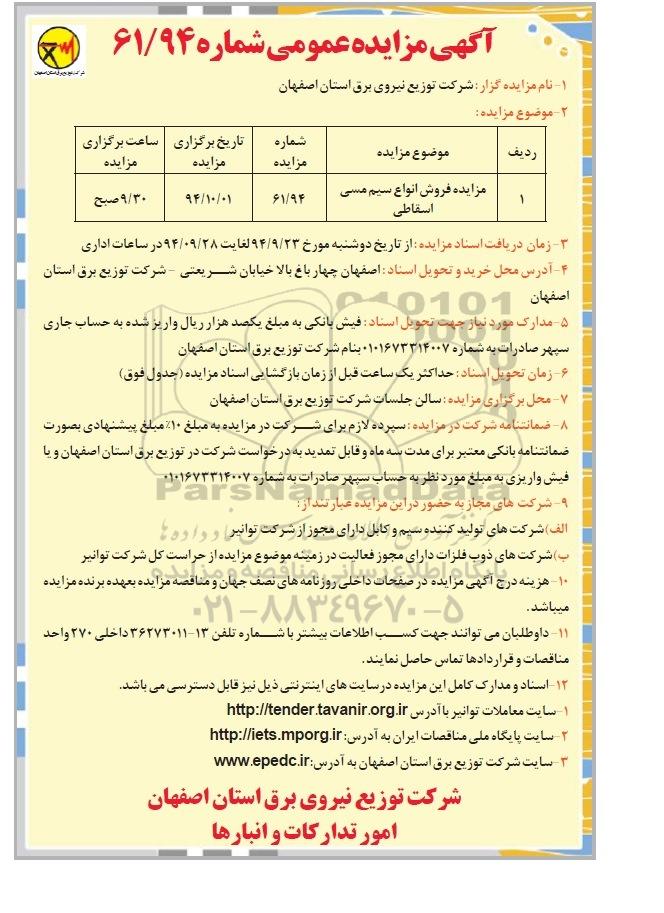 آگهی مزایده عمومی شماره ۶۱/۹۴
شرکت توزیع برق استان اصفهان
۱- نام مزایده گزار: شرکت توزیع نیروی برق استان اصفهان
۲-موضوع مزایده:
ردیف موضوع مزایده شماره مزایده تاریخ برگزاری مزایده ساعت برگزاری مزایده
۱ مزایده فروش انواع سیم مسی اسقاطی ۶۱/۹۴ ۹۴/۱۰/۰۱ ۹/۳۰صبح
۳- زمان دریافت اسناد مزایده: از تاریخ دوشنبه مورخ ۹۴/۹/۲۳ لغایت ۹۴/۰۹/۲۸ در ساعات اداری
۴- آدرس محل خرید و تحویل اسناد: اصفهان چهار باغ بالا خیابان شـــریعتی - شرکت توزیع برق استان
اصفهان
۵-مدارک مورد نیاز جهت تحویل اسناد: فیش بانکی به مبلغ یکصد هزار ریال واریز شده به حساب جاری
سپهر صادرات به شماره ۰۱۰۱۶۷۳۳۱۴۰۰۷ بنام شرکت توزیع برق استان اصفهان
۶- زمان تحویل اسناد: حداکثر یک ساعت قبل از زمان بازگشایی اسناد مزایده (جدول فوق)
۷- محل برگزاری مزایده: سالن جلسات شرکت توزیع برق استان اصفهان
۸- ضمانتنامه شرکت در مزایده: سپرده لازم برای شـــرکت در مزایده به مبلغ ۱۰٪مبلغ پیشنهادی بصورت
ضمانتنامه بانکی معتبر برای مدت سه ماه و قابل تمدید به درخواست شرکت در توزیع برق استان اصفهان و یا
فیش واریزی به مبلغ مورد نظر به حساب سپهر صادرات به شماره ۰۱۰۱۶۷۳۳۱۴۰۰۷
۹- شرکت های مجاز به حضور در این مزایده عبارتند از:
الف)شرکت های تولید کننده سیم و کابل دارای مجوز از شرکت توانیر
ب)شرکت های ذوب فلزات دارای مجوز فعالیت در زمینه موضوع مزایده از حراست کل شرکت توانیر
۱۰- هزینه درج آگهی مزایده در صفحات داخلی روزنامه های نصف جهان و مناقصه مزایده بعهده برنده مزایده
میباشد.
۱۱- داوطلبان می توانند جهت کســـب اطلاعات بیشتر با شـــماره تلفن ۱۳-۳۶۲۷۳۰۱۱ داخلی ۲۷۰ واحد
مناقصات و قراردادها تماس حاصل نمایند.
۱۲-اسناد و مدارک کامل این مزایده در سایت های اینترنتی ذیل نیز قابل دسترسی می باشد.
۱-سایت معاملات توانیر با آدرس http://tender.tavanir.org.ir
۲-سایت پایگاه ملی مناقصات ایران به آدرس: http://iets.mporg.ir
۳-سایت شرکت توزیع برق استان اصفهان به آدرس: www.epedc.ir
شرکت توزیع نیروی برق استان اصفهان
امور تدارکات و انبارها
ParsNamadData
پایگاه اطلاع رسانی مناقصه و مزایده
۰۲۱-۸۸۳۴۹۶۷۰-۵